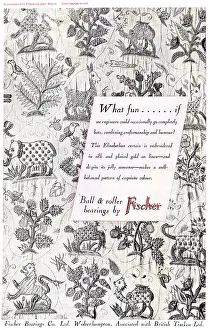 What fun . . . . . . if
we engineers could occasionally go completely
bats, combining craftsmanship and humour?
This Elizabethan curtain is embroidered
in silk and plaited gold on linen—and
despite its jolly nonsense—makes a well-
balanced pattern of exquisite colour.
Ball & roller
bearings by Fischer
Fischer Bearings Co. Ltd. Wolverhampton, Associated with British Timken Ltd.